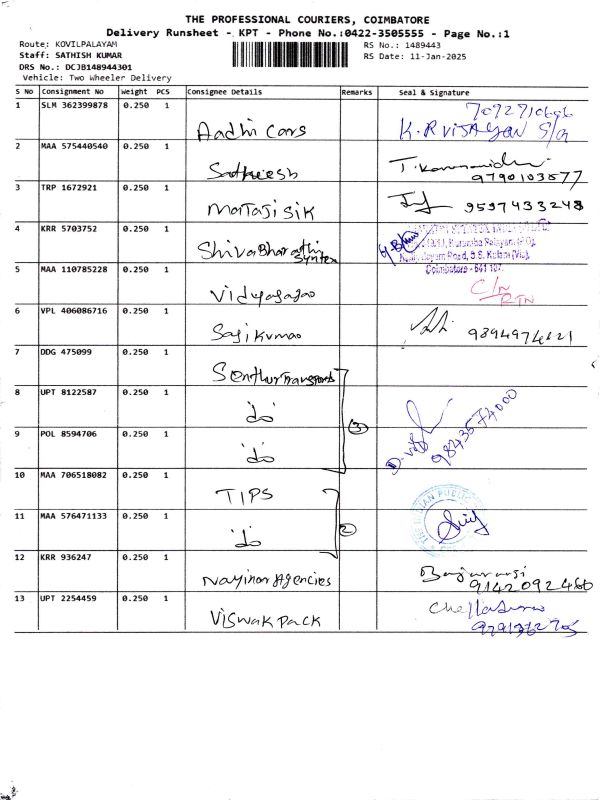 THE PROFESSIONAL COURIERS, COIMBATORE
Delivery Runsheet - KPT - Phone No.:0422-3505555 - Page No.:1
Route: KOVILPALAYAM
Staff: SATHISH KUMAR
DRS No.: DCJB148944301
Vehicle: Two Wheeler Delivery
RS No.: 1489443
RS Date: 11-Jan-2025
S No Consignment No Weight PCS Consignee Details Remarks Seal & Signature
1 SLM 362399878 0.250 1 Aadhi Cars
2 MAA 575440540 0.250 1 Satheesh 9790103577
3 TRP 1672921 0.250 1 mataji sik 9597433248
4 KRR 5703752 0.250 1 Shiva Bharathi Syntex
Coimbatore - 641 107.
5 MAA 110785228 0.250 1 Vidyasagar C/N RTN
6 VPL 406086716 0.250 1 Sasikumar
7 DDG 475099 0.250 1 Senthur Transports
8 UPT 8122587 0.250 1 do 3
9 POL 8594706 0.250 1 do
10 MAA 706518082 0.250 1 TIPS
11 MAA 576471133 0.250 1 do 2
12 KRR 936247 0.250 1 Nayinar Agencies
13 UPT 2254459 0.250 1 Viswak pack